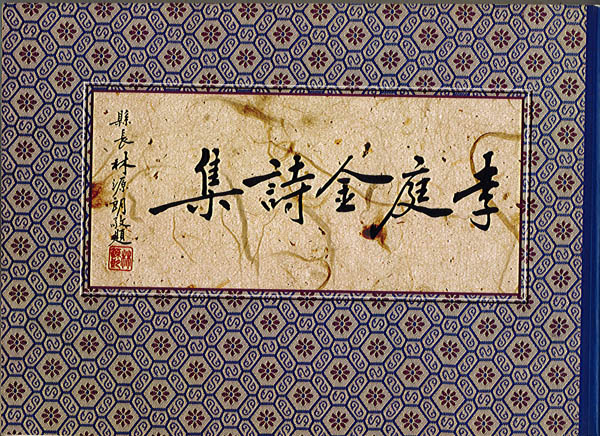 李庭金詩集
縣長林源朗敬題